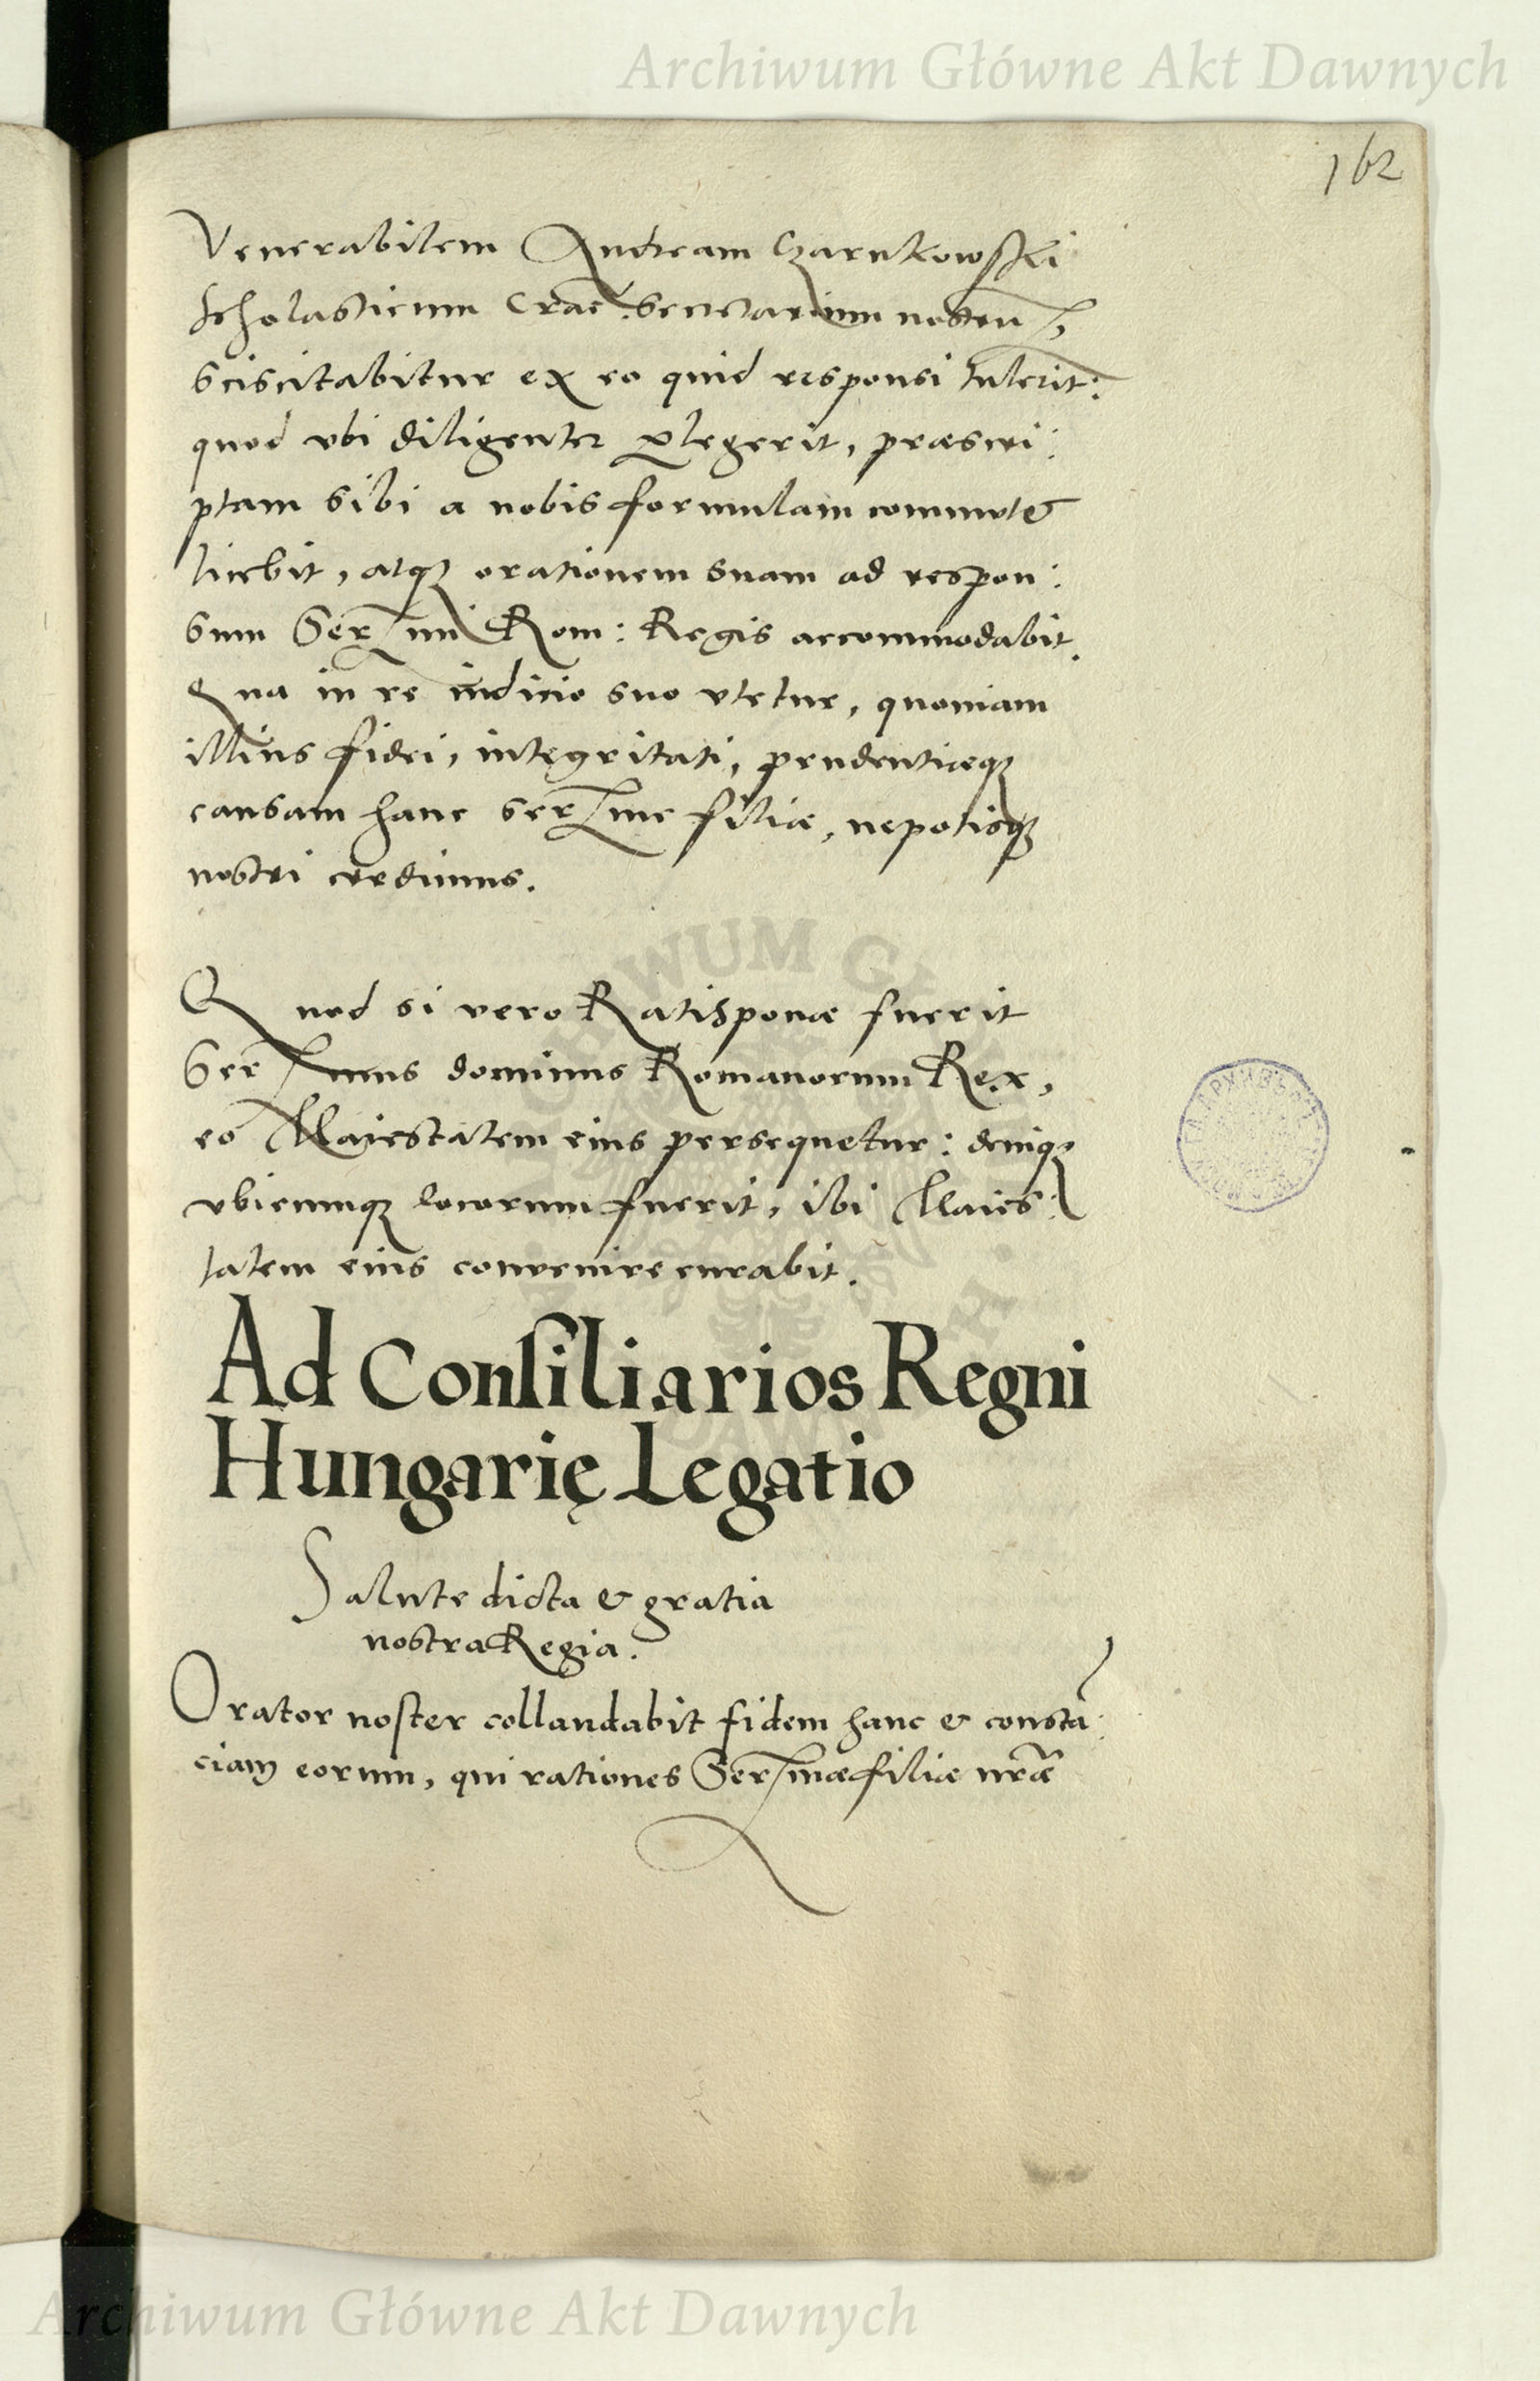 Archiwum Główne Akt Dawnych
162
Venerabilem Andream Czarnkowski
Scholasticum Crac̄. Secretarium nostrū,
sciscitabitur ex eo quid responsi tulerit:
quod vbi diligenter ꝑlegerit, præscri:
ptam sibi a nobis formulam com̄utare
licebit, atqꝫ orationem suam ad respon:
sum Serᵐⁱ Rom: Regis accommodabit.
Qua in re iudicio suo vtetur, quoniam
illius fidei, integritati, prudentiæqꝫ
causam hanc Serᵐᵉ filiæ, nepotisqꝫ
nostri credimus.
Quod si vero Ratisponæ fuerit
Serᵐᵘˢ dominus Romanorum Rex,
eo Maiestatem eius persequetur: deniqꝫ
vbicunqꝫ locorum fuerit, ibi Maies:
tatem eius convenire curabit.
Ad Conſiliarios Regni
Hungarię Legatio
Salute dicta & gratia
nostra Regia.
Orator noſter collaudabit fidem hanc & constā:
ciam eorum, qui rationes Serᵐæ filiæ nr̄æ
Archiwum Główne Akt Dawnych